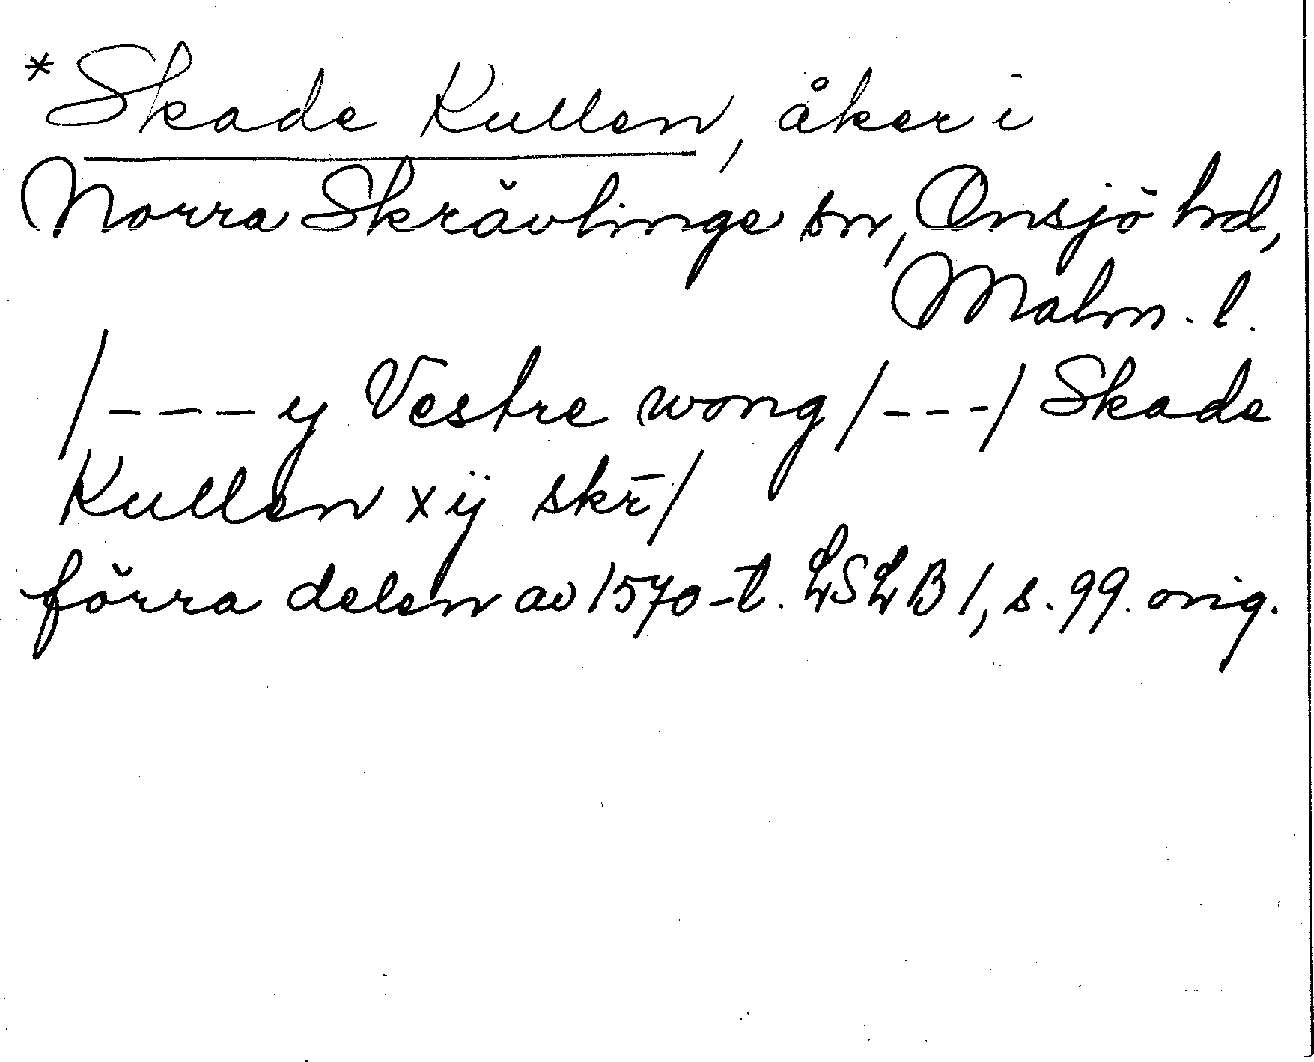 *Skade Kullen, åker i
Norra Skrävlinge sn, Onsjö hd,
Malm. l.
/---y Vestre wong/---/Skade
Kullen xij skr̄/
förra delen av 1570-t. LSLB 1, s. 99. orig.